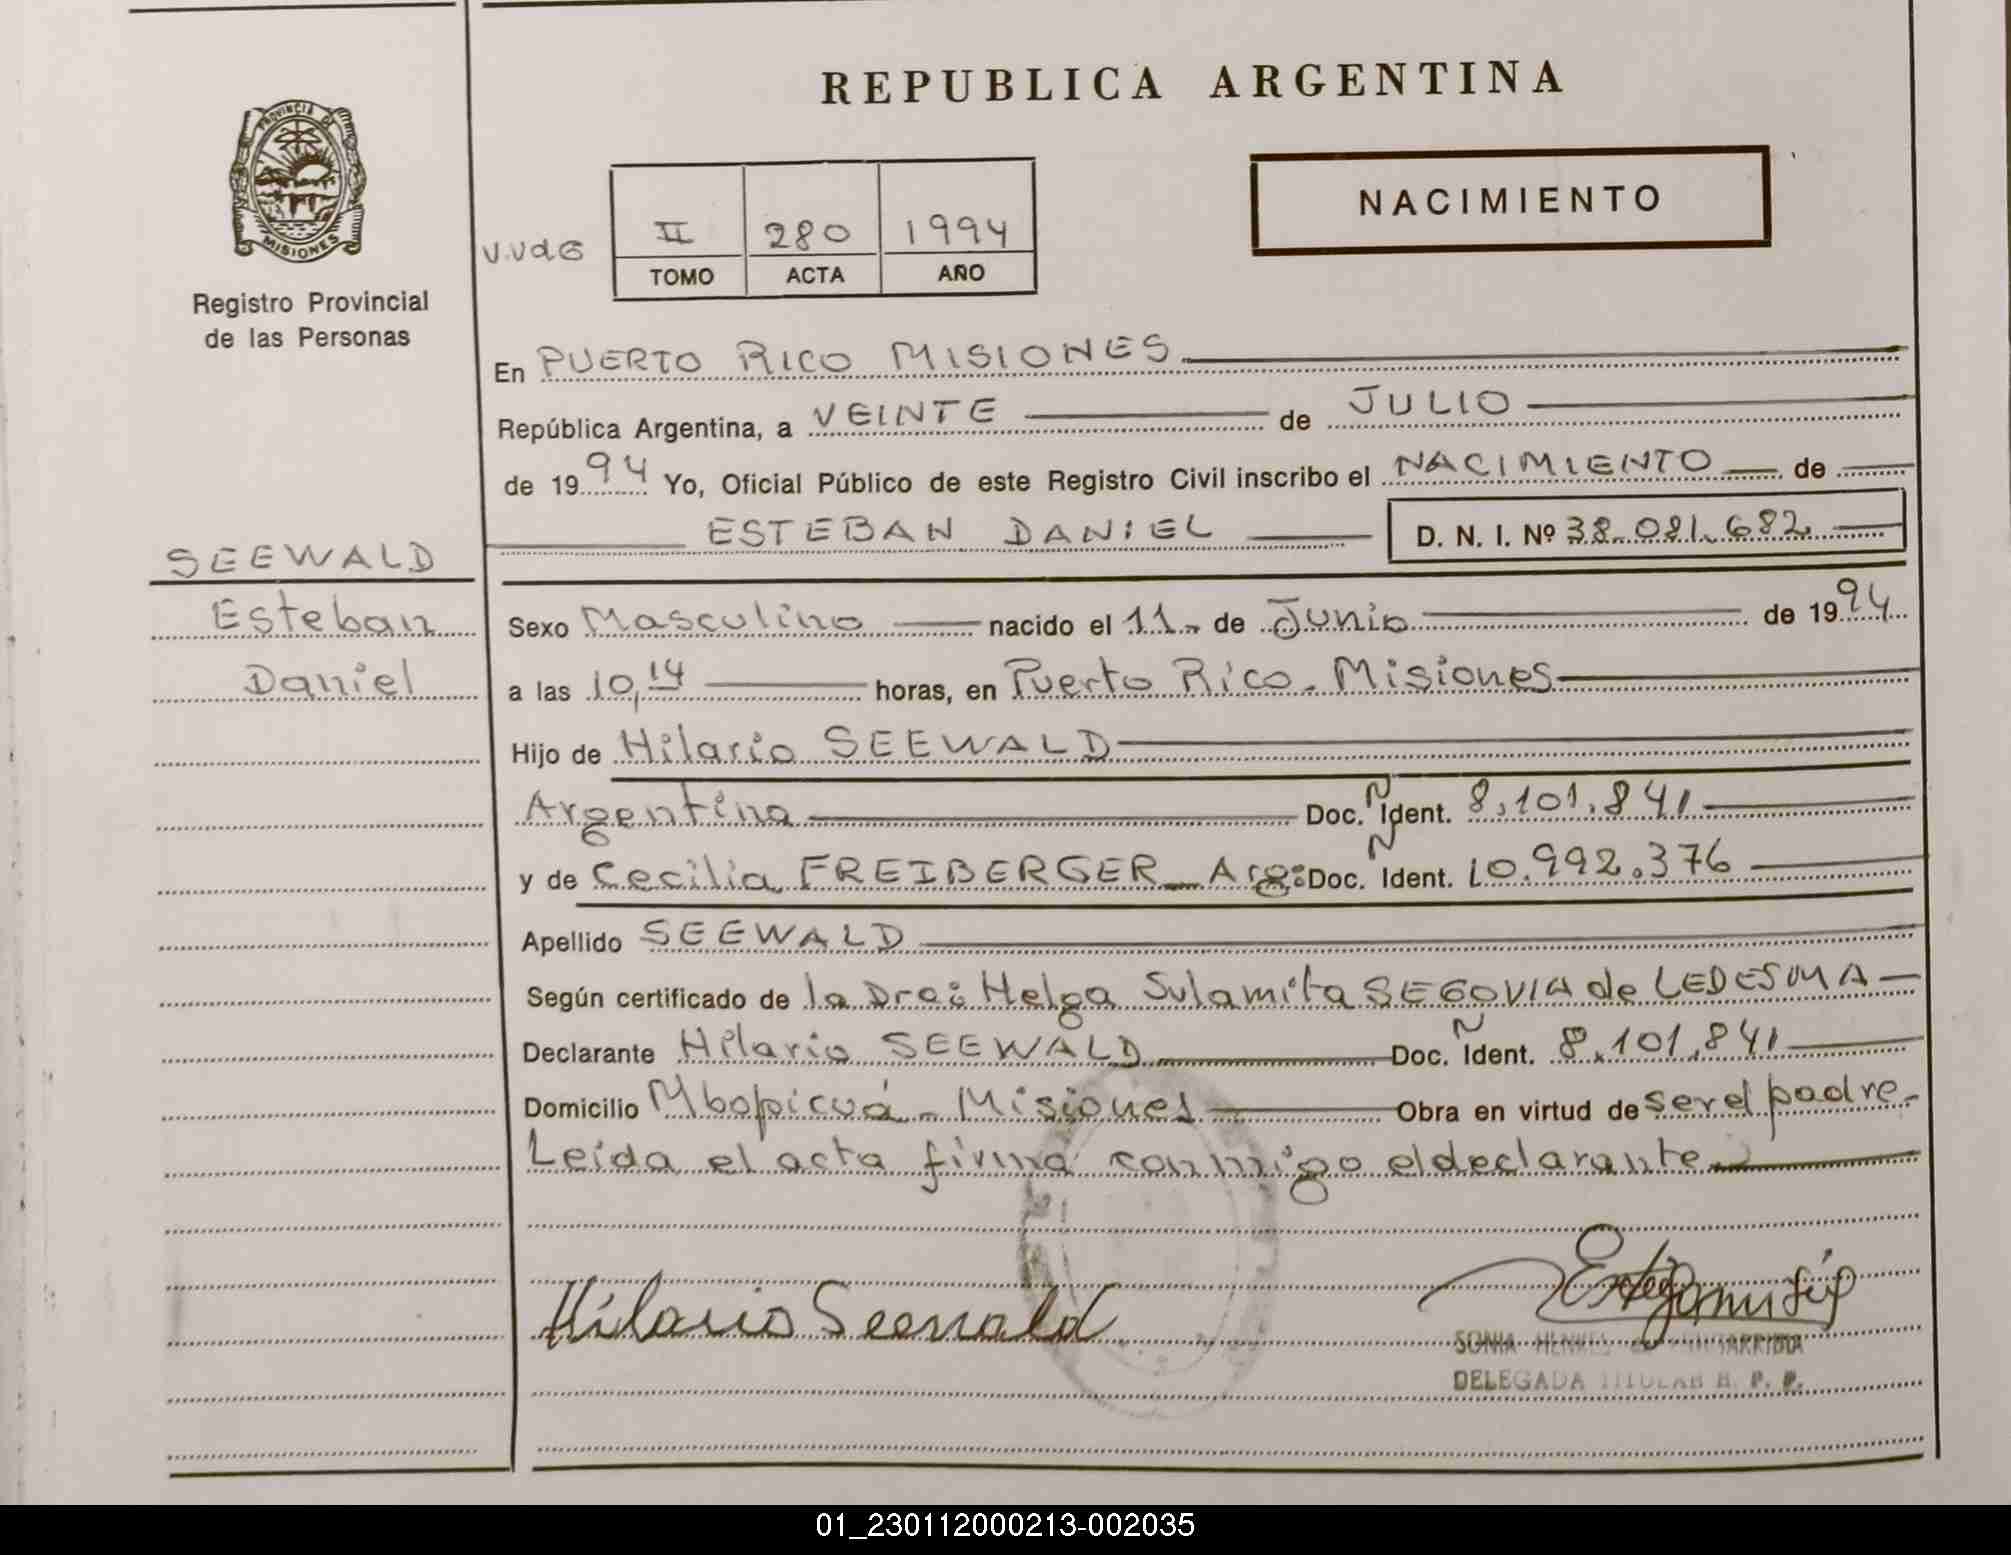 REPUBLICA ARGENTINA
PROVINCIA DE
MISIONES
Registro Provincial
de las Personas
NACIMIENTO
V.VdG
II 280 1994
TOMO ACTA AÑO
En PUERTO RICO MISIONES
República Argentina, a VEINTE de JULIO
de 1994 Yo, Oficial Público de este Registro Civil inscribo el NACIMIENTO de
ESTEBAN DANIEL D. N. I. Nº 38.081.682
SEEWALD
Esteban
Daniel
Sexo Masculino nacido el 11 de Junio de 1994
a las 10,14 horas, en Puerto Rico. Misiones
Hijo de Hilario SEEWALD
Argentina Doc. N Ident. 8.101.841
y de Cecilia FREIBERGER Arg: Doc. N Ident. 10.992.376
Apellido SEEWALD
Según certificado de la Dra: Helga Sulamita SEGOVIA de LEDESMA
Declarante Hilario SEEWALD Doc. N Ident. 8.101.841
Domicilio Mbopicuá - Misiones Obra en virtud de ser el padre.
Leída el acta firma conmigo el declarante
Hilario Seewald
SONIA
DELEGADA TITULAR R. P. P.
01_230112000213-002035